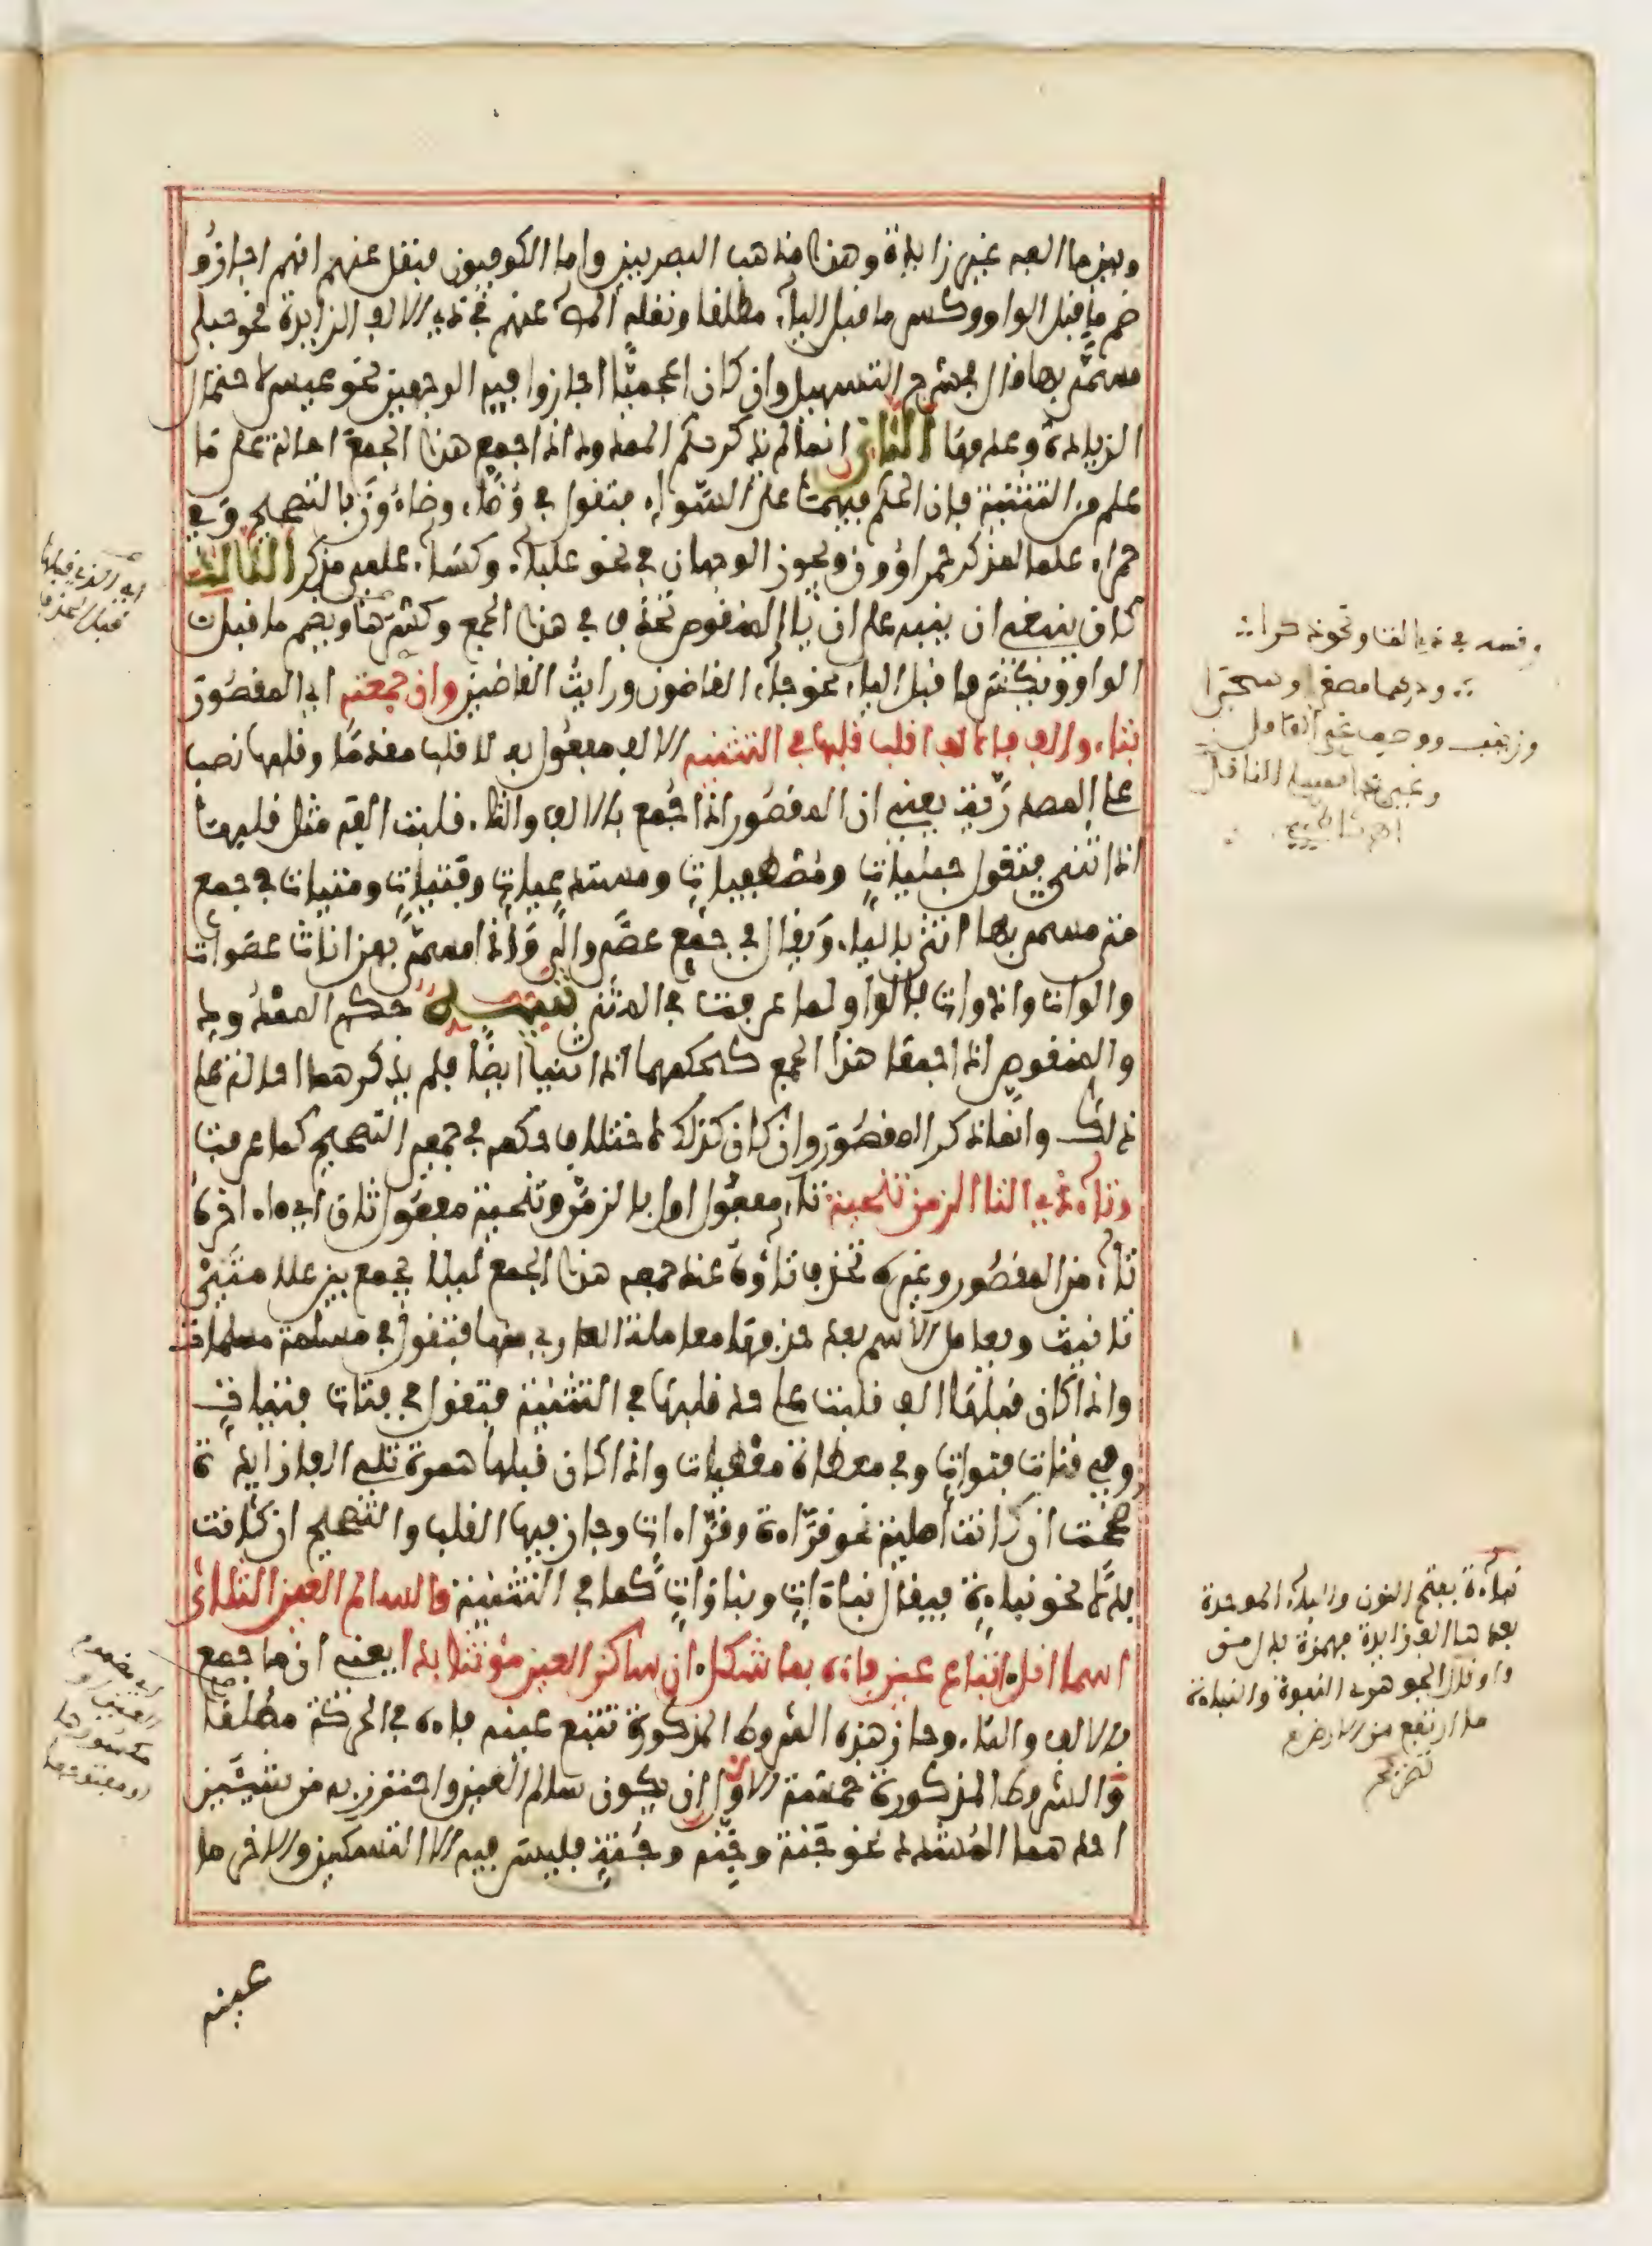 وبين ما الفه غير زايدة وهذا مذهب البصريين واما الكوفيون فنقل عنهم انهم اجازوا
ضم ما قبل الواو وكسر ما قبل الياء مطلقا ونقله المص عنهم في ذي الالف الزايدة نحو حبلى
مسمى بها قال في شرح التسهيل وان كان اعجميا اجازوا فيه الوجهين نحو عيسى لاحتمال
الزيادة وعدمها الثاني انما لم يذكر حكم الممدود اذا جمع هذا الجمع احالة على ما
علم من التثنية فان الحكم فيهما على السواء فتقول في وضاء وضاءون بالتصحيح وفي
حمراء علما لمذكر حمراوون ويجوز الوجهان في نحو علباء وكساء علمي مذكر الثالث
كان ينبغي ان ينبه على ان ياء المنقوص تحذف في هذا الجمع وكسرتها ويضم ما قبل
الواو ويكسر ما قبل الياء نحو جاء القاضون ورايت القاضين وان جمعته اي المقصور
بتاء والف فالالف اقلب قلبها في التثنيه الالف مفعول به لاقلب مقدما وقلبها نصب
على المصدرية يعني ان المقصور اذا جمع بالالف والتاء قلبت الفه مثل قلبها
اذا ثني فتقول حبليات ومصطفيات ومستدعيات وفتيات ومتيات في جمع
متى مسمى بها انثى بالياء ويقال في جمع عصا والى واذا مسمى بهن اناث عصوات
والوات واذوات بالواو لما عرفت في المثنى تنبيه حكم الممدود
والمنقوص اذا جمعا هذا الجمع كحكمهما اذا ثنيا ايضا فلم يذكرهما احالة على
ذلك وانما ذكر المقصور وان كان كذلك لاختلاف حكمه في جمعي التصحيح كما عرفت
وتاء ذي التا الزمن تنحيه تاء مفعول اول بالزمن وتنحية مفعول ثان اي ما اخره
تاء من المقصور وغيره تحذف تاؤه عند جمعه هذا الجمع ليلا يجمع بين علامتي
تانيث ويعامل الاسم بعد حذفها معاملة العاري منها فتقول في مسلمة مسلمات
واذا كان قبلها الف قلبت على حد قلبها في التثنية فتقول في فتات فتيات
وفي قنات قنوات وفي معطاة معطيات واذا كان قبلها همزة تلي الفا زايدة
صححت ان كانت اصلية نحو قراءة وقراءات وجاز فيها القلب والتصحيح ان كانت
بدلا نحو نباءة فيقال نباءات ونباوات كما في التثنية والسالم العين الثلاثي
اسما انل اتباع عين فاءه بما شكل ان ساكن العين مونثا بدا يعني ان ما جمع
بالالف والتاء وحاز هذه الشروط المذكورة تتبع عينه فاءه في الحركة مطلقا
والشروط المذكورة خمسة الاول ان يكون سالم العين واحترز به من شيئين
احدهما المشدد نحو جنة وجنة وجنة فليس فيه الا التسكين والاخر ما
عينه
وقسه في ذي التا ونحو ذكرا
ودرهما مصغرا وصحرا
وزينب ووصف غير العاقل
وغير ذا مسلم للناقل
نباءة بفتح النون والباء الموحدة
بعدها الف زايدة فهمزة بدل من
واو قال الجوهري النبوة والنباوة
ما ارتفع من الارض
تصريح